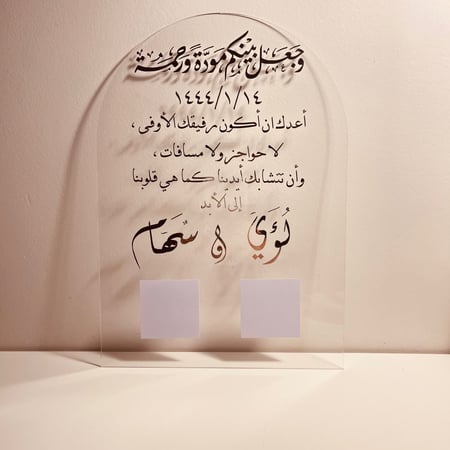 وجعل بينكم مودة ورحمة
١٤٤٤/١/١٤
أعدك ان أكون رفيقك الأوفى ،
لا حواجز ولا مسافات ،
وأن تتشابك أيدينا كما هي قلوبنا
إلى الأبد
لُؤَيَ و سِهَام